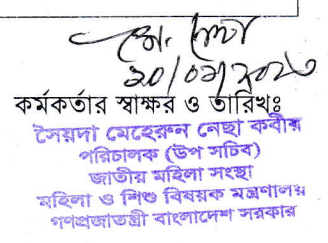 ২০/০৯/২০২৩
কর্মকর্তার স্বাক্ষর ও তারিখঃ
সৈয়দা মেহেরুন নেছা কবীর
পরিচালক (উপ সচিব)
জাতীয় মহিলা সংস্থা
মহিলা ও শিশু বিষয়ক মন্ত্রণালয়
গণপ্রজাতন্ত্রী বাংলাদেশ সরকার